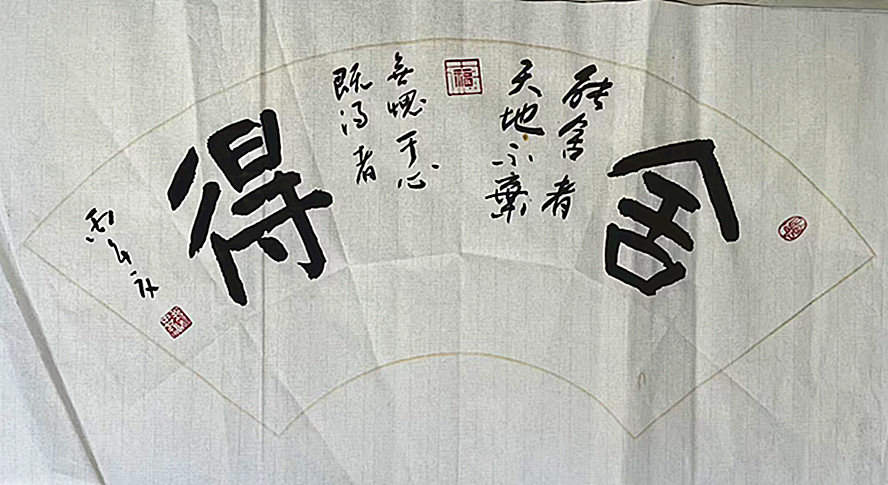 舍
能舍者
天地不棄
福
無愧于心
既得者
得